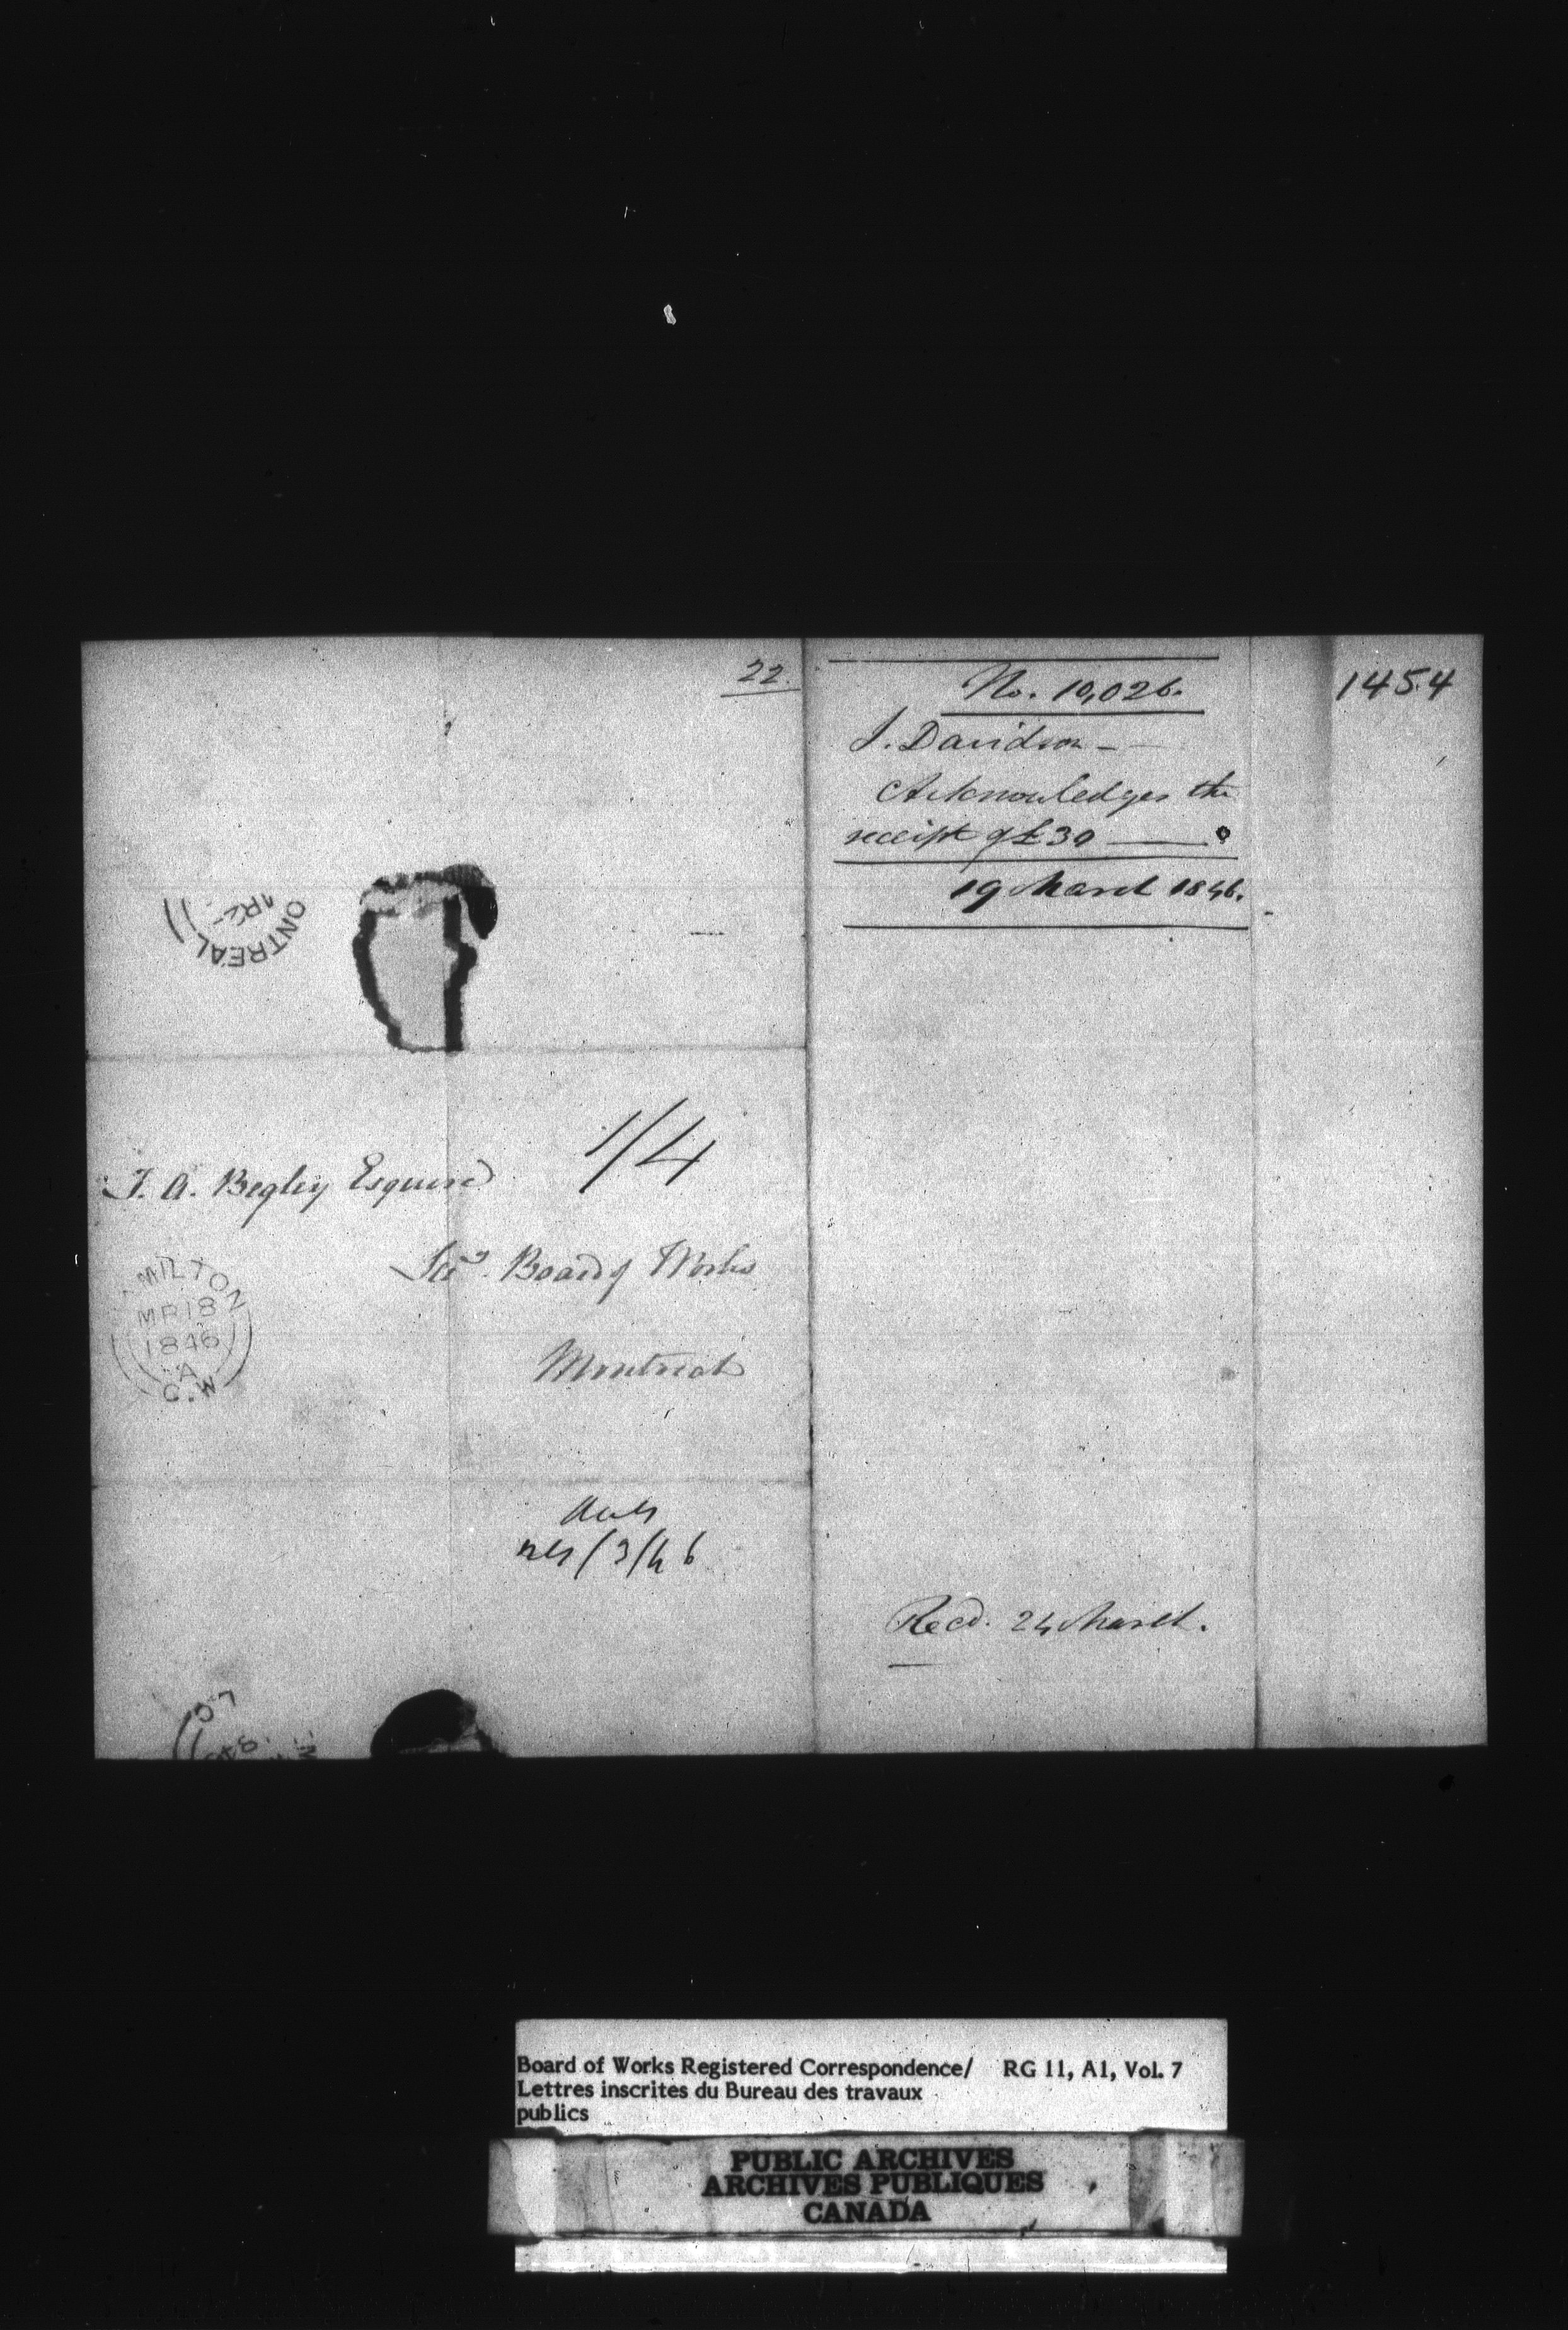 22.
ONTREAL
1/4
T. A. Begley Esquire
MILTON
MR 18
1846
A
C.W
Secy. Board of Works
Montreal
/3/46
No. 10,026.
J. Davidson -
Acknowledges the
receipt of £30
19 March 1846.
Recd. 24 March.
1454
Board of Works Registered Correspondence/ RG 11, A1, Vol. 7
Lettres inscrites du Bureau des travaux
publics
PUBLIC ARCHIVES
ARCHIVES PUBLIQUES
CANADA